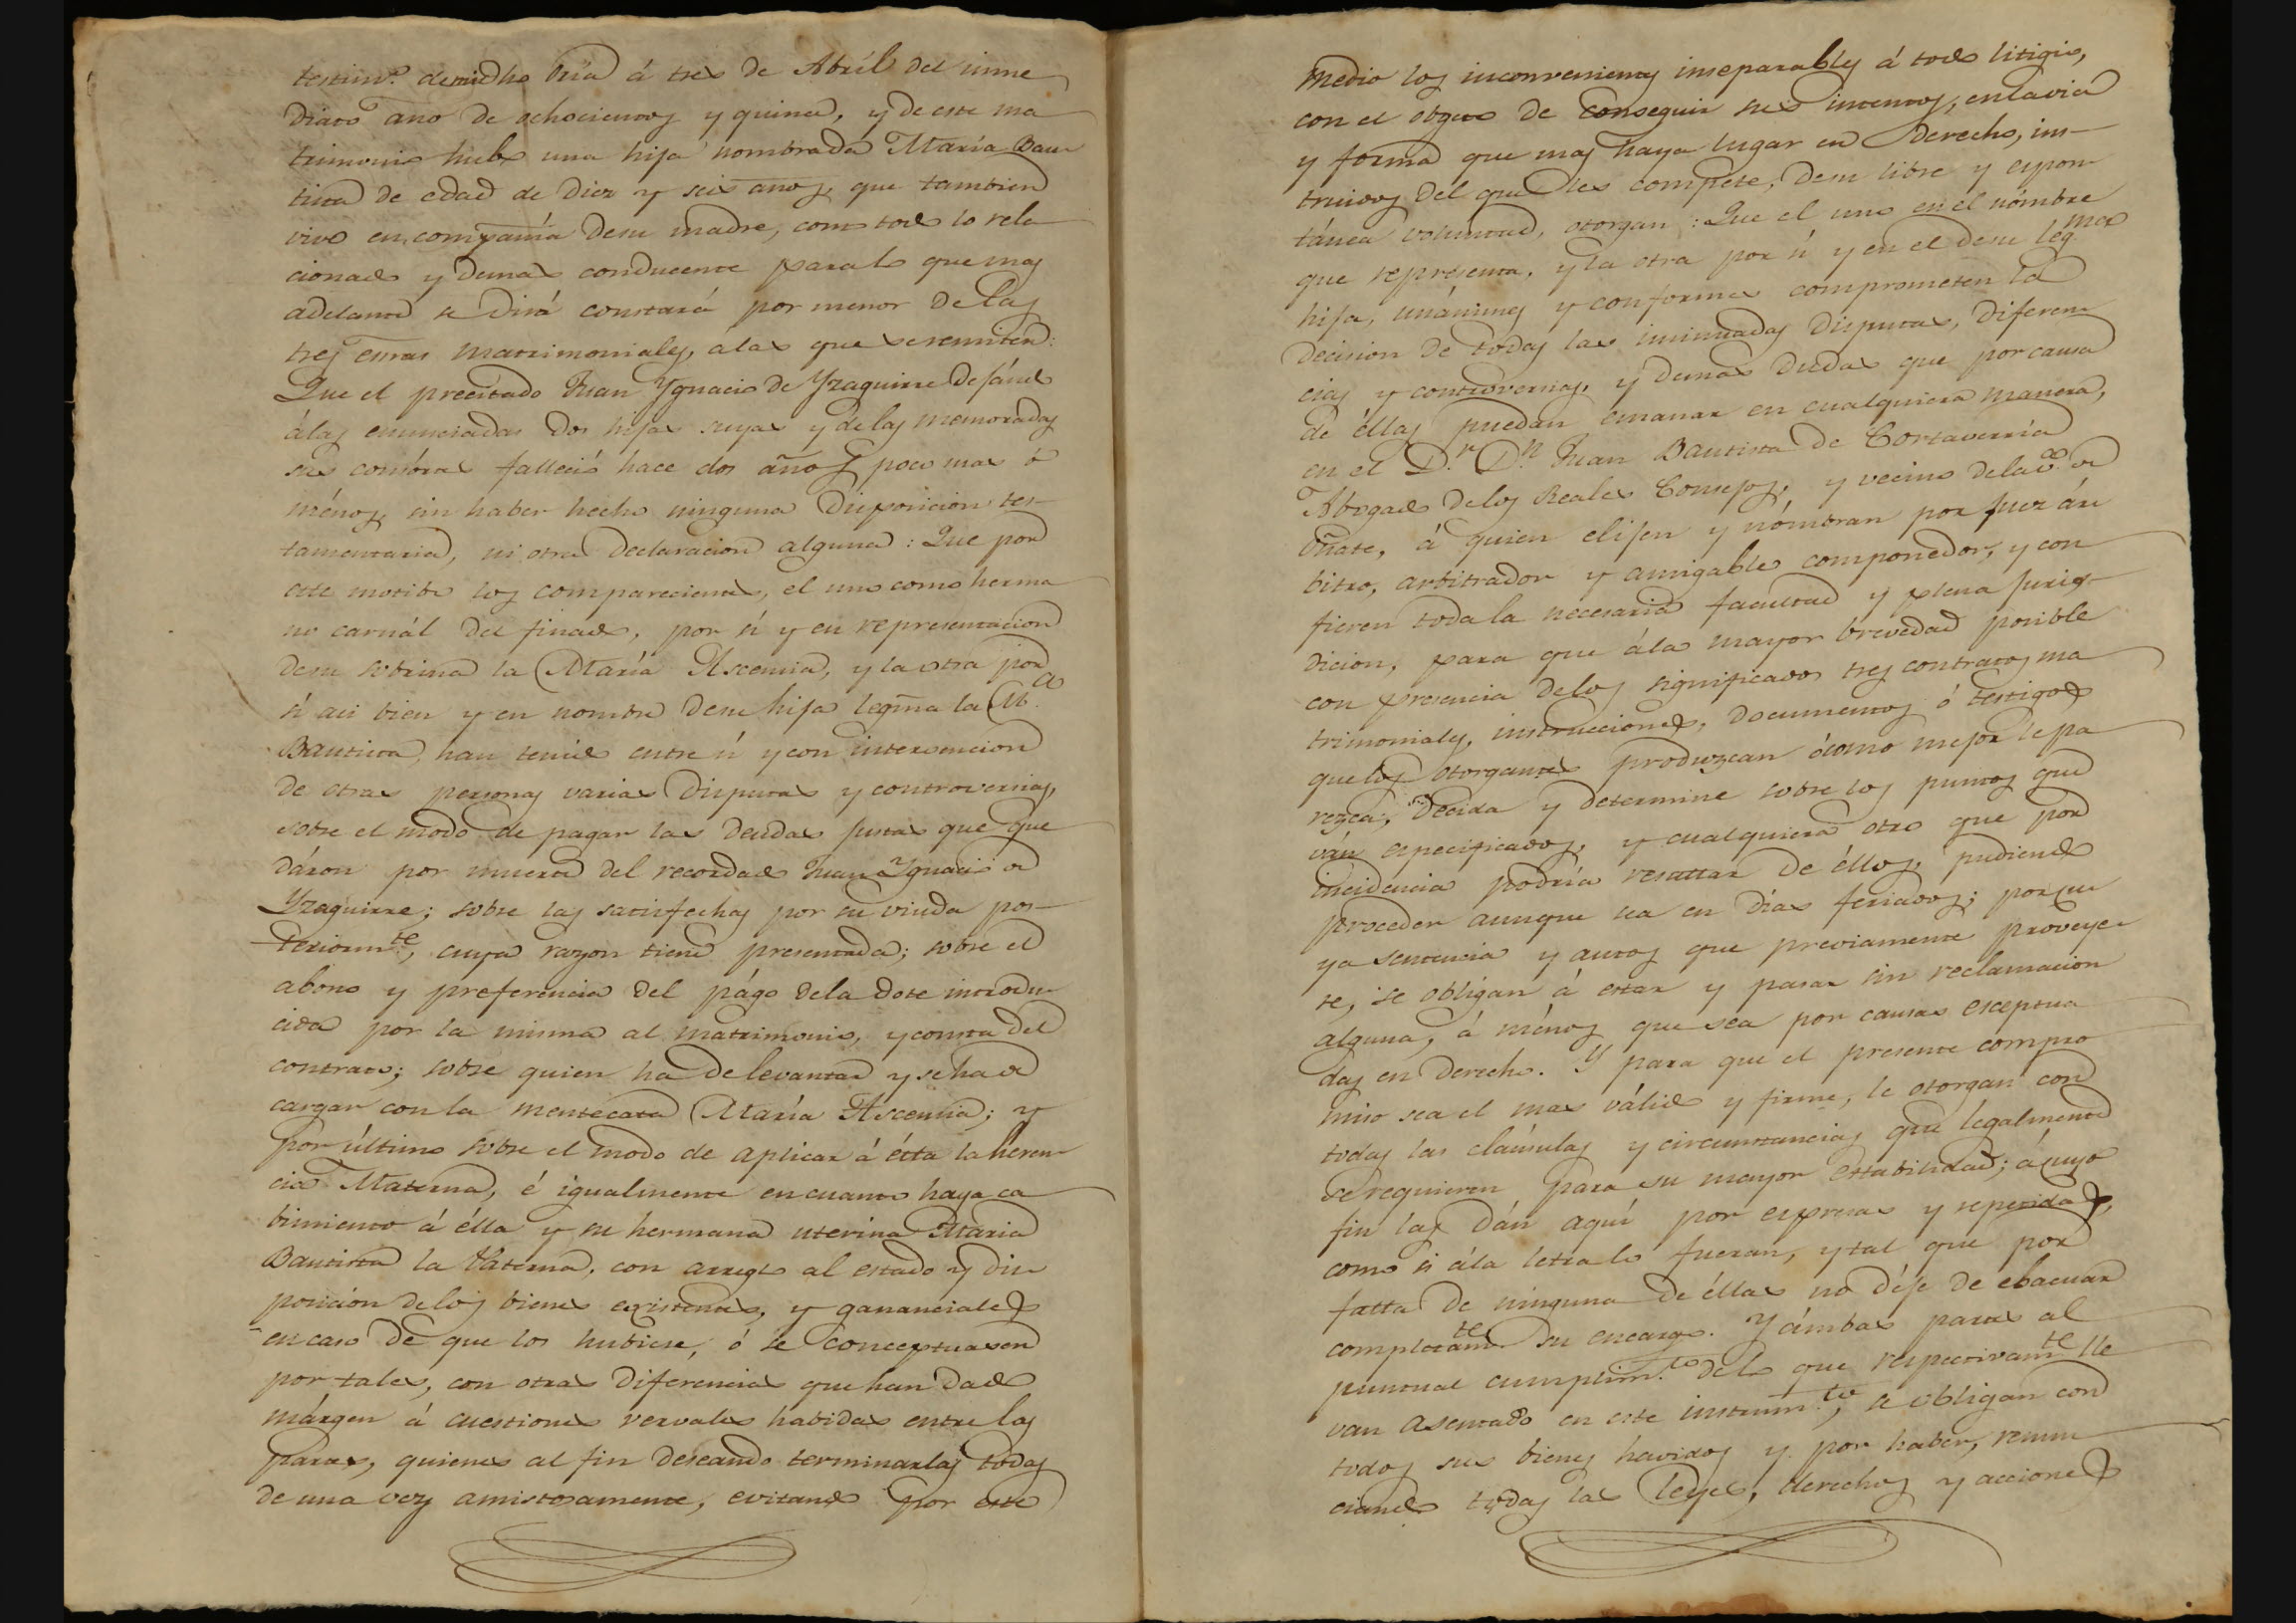 testim.º demidho bría á tres de Abríl del inme
diato año de ochocientos y quince, y de este ma
trimonio hubo una hija nombrada María Bau
tista de edad de diez y seis años, que tambien
vive en compañía desu madre, como todo lo rela
cionado y demas conducente paralo que mas
adelante se dirá constará por menor de las
tres enras matrimoniales, alas que seremiten:
Que el precitado Juan Ygnacio de Yzaguirre desándo
álas enunciadas dos hijas suyas y delas memoradas
sus consortes falleció hace dos años poco mas ó
ménos, sin haber hecho ninguna disposicion tes-
tamentaria, ni otra declaracion alguna: Que por
este motibo los comparecientes, el uno como herma
no carnál del finado, por sí y en representacion
desu sobrina la María Ascencia, y la otra por
sí asi bien y en nombre desu hija legma la M.ª
Bautista, han tenido entre sí y con intervencion
de otras personas varias disputas y controversias,
sobre el modo de pagar las deudas justas que que
dáron por muerte del recordado Juan Ygnacio de
Yzaguirre; sobre las satisfechas por su viuda pos-
teriormte, cuya razon tiene presentada; sobre el
abono y preferencia del págo dela dote introdu
cida por la misma al matrimonio, y consta del
contrato; sobre quien ha delevantar y se ha de
cargar con la mentecata María Ascencia; y
por último sobre el modo de aplicar á ésta la heren
cia Materna, é igualmente en cuanto haya ca
bimiento á élla y su hermana uterina María
Bautista la Paterna, con arreglo al estado y dis
posicion delos bienes existentes, y gananciales
en caso de que los hubiese, ó se conceptuasen
por tales, con otras diferencias que han dado
márgen á cuestiones vervales habidas entre las
partes, quienes al fin deseando terminarlas todas
de una vez amistosamente, evitando por este
medio los inconvenientes inseparables á todo litigio,
con el objeto de conseguir sus intentos, enlavia
y forma que mas haya lugar en derecho, ins-
truidos del que les compete, desu libre y espon
tánea voluntad, otorgan: Que el uno en el nómbre
que representa, y la otra por sí y en el desu legma
hija, unánimes y conformes comprometen la
decision de todas las insinuadas disputas, diferen
cias y controversias, y demas dudas que por causa
de éllas puedan emanar en cualquiera manera,
en el D.r D.n Juan Bautista de Cortaverría
Abogado delos Reales Consejos, y vecino dela v.ª de
Oñate, á quien elijen y nómbran por juez ár
bitro, arbitrador y amigable componedor, y con
fieren toda la necesaria facultad y plena juris-
dicion, para que ála mayor brevedad posible
con presencia delos significados tres contratos ma
trimoniales, instrucciones, documentos ó testigos
que los otorgantes produzcan ócomo mejor le pa
rezca, decida y determine sobre los puntos que
ván especificados, y cualquiera otro que por
incidencia podría resultar de éllos, pudiendo
proceder aunque sea en dias feriados; por cu
ya sentencia y autos que previamente proveye
se, se obligan á estar y pasar sin reclamacion
alguna, á ménos que sea por causas esceptua
das en derecho. Y para que el presente compro
miso sea el mas válido y firme, le otorgan con
todas las claúsulas y circunstancias que legalmente
se requieren para su mayor estabilidad; ácuyo
fin las dán aquí por espresas y repetidas,
como si ála letra lo fueran, y tal que por
falta de ninguna de éllas no déje de ebacuar
completamte su encargo. Y ámbas partes al
puntual cumplim.to delo que respectivamte lle
van asentado en este instrum.to, se obligan con
todos sus bienes havidos y por haber, renun
ciando todas las leyes, derechos y acciones